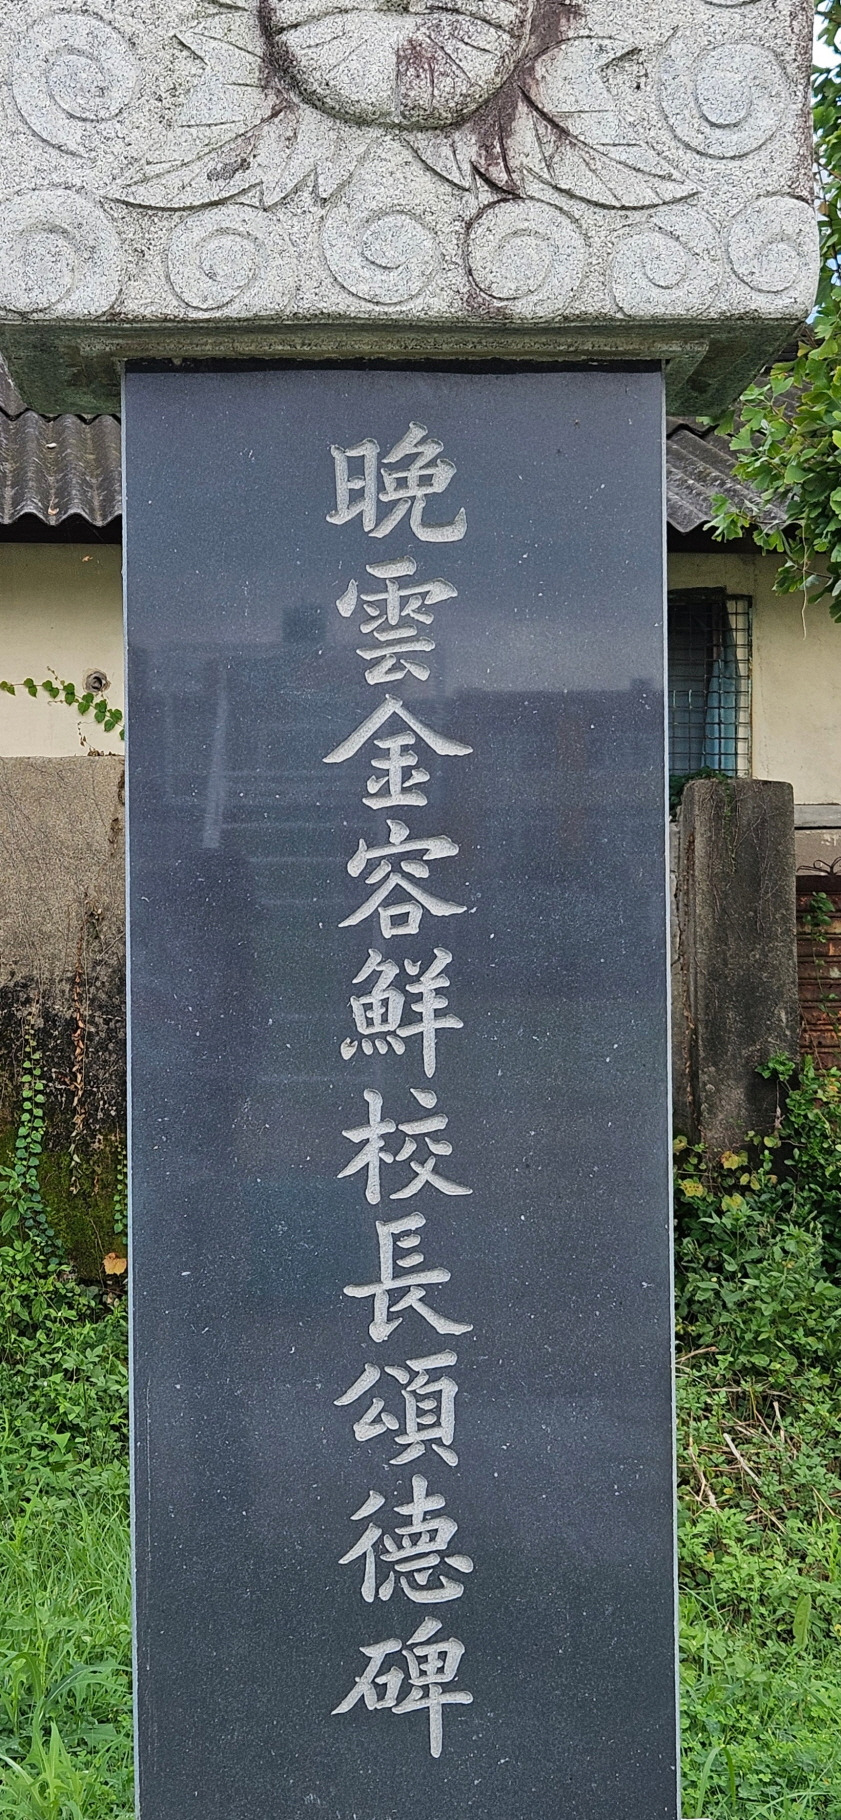 晩雲金容鮮校長頌德碑